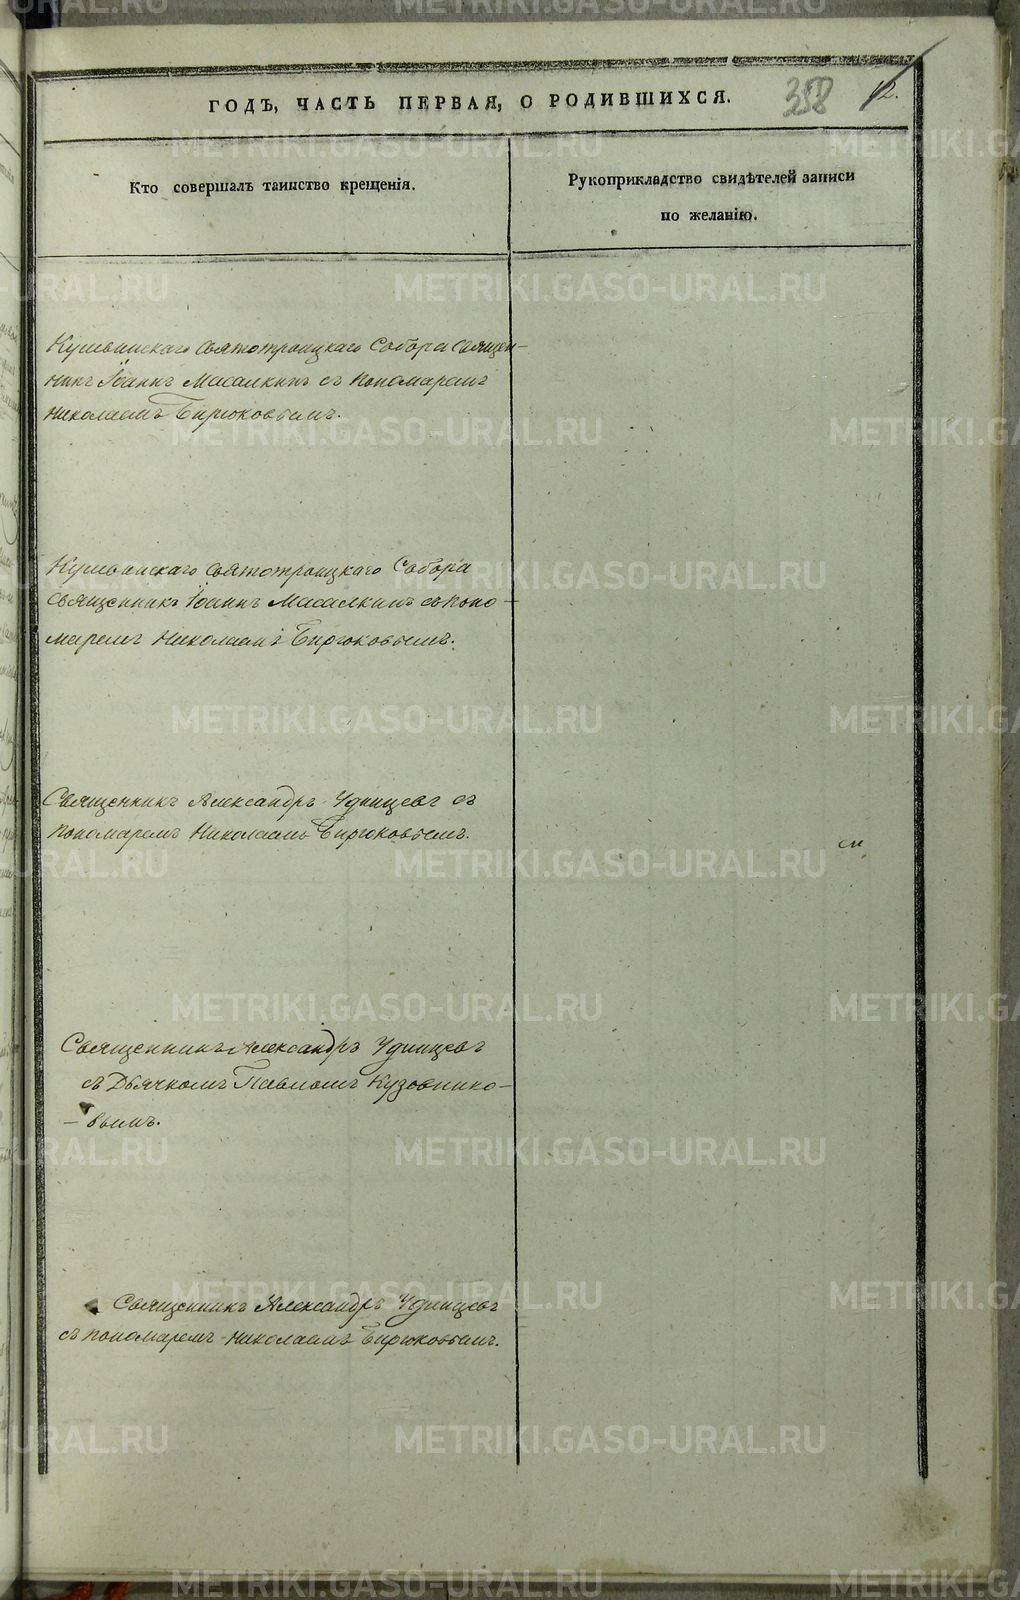 ГОДЪ, ЧАСТЬ ПЕРВАЯ, О РОДИВШИХСЯ.
358 12.
Кто совершалъ таинство крещенія.
Рукоприкладство свидѣтелей записи
по желанію.
Кушвинскаго Святотроицкаго Собора Священ-
никъ Іоаннъ Масалкинъ съ пономаремъ
Николаемъ Бирюковымъ.
Кушвинскаго Святотроицкаго Собора
Священникъ Іоаннъ Масалкинъ съ поно-
маремъ Николаемъ Бирюковымъ.
Священникъ Александръ Удинцевъ съ
пономаремъ Николаемъ Бирюковымъ.
Священникъ Александръ Удинцевъ
съ Дьячкомъ Павломъ Кузовнико-
-вымъ.
Священникъ Александръ Удинцевъ
съ пономаремъ Николаемъ Бирюковымъ.
METRIKI.GASO-URAL.RU